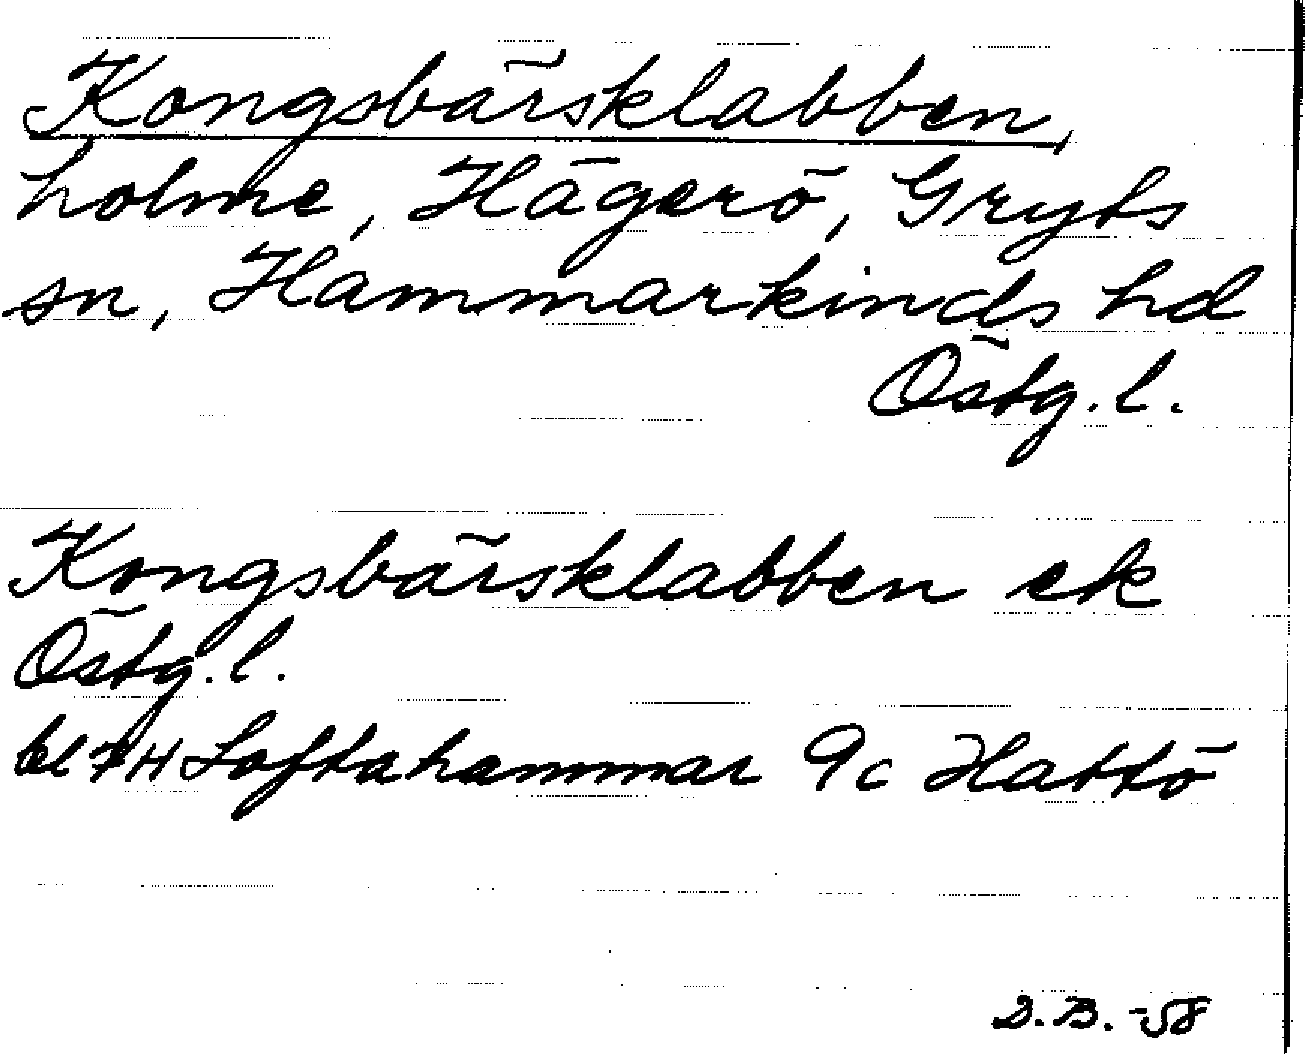 Kongsbärsklabben,
holme, Hägerö, Gryts
sn, Hammarkinds hd
Östg. l.
Kongsbärsklabben ek
Östg. l.
bl 7 H Loftahammar 9c Hattö
D.B. -58